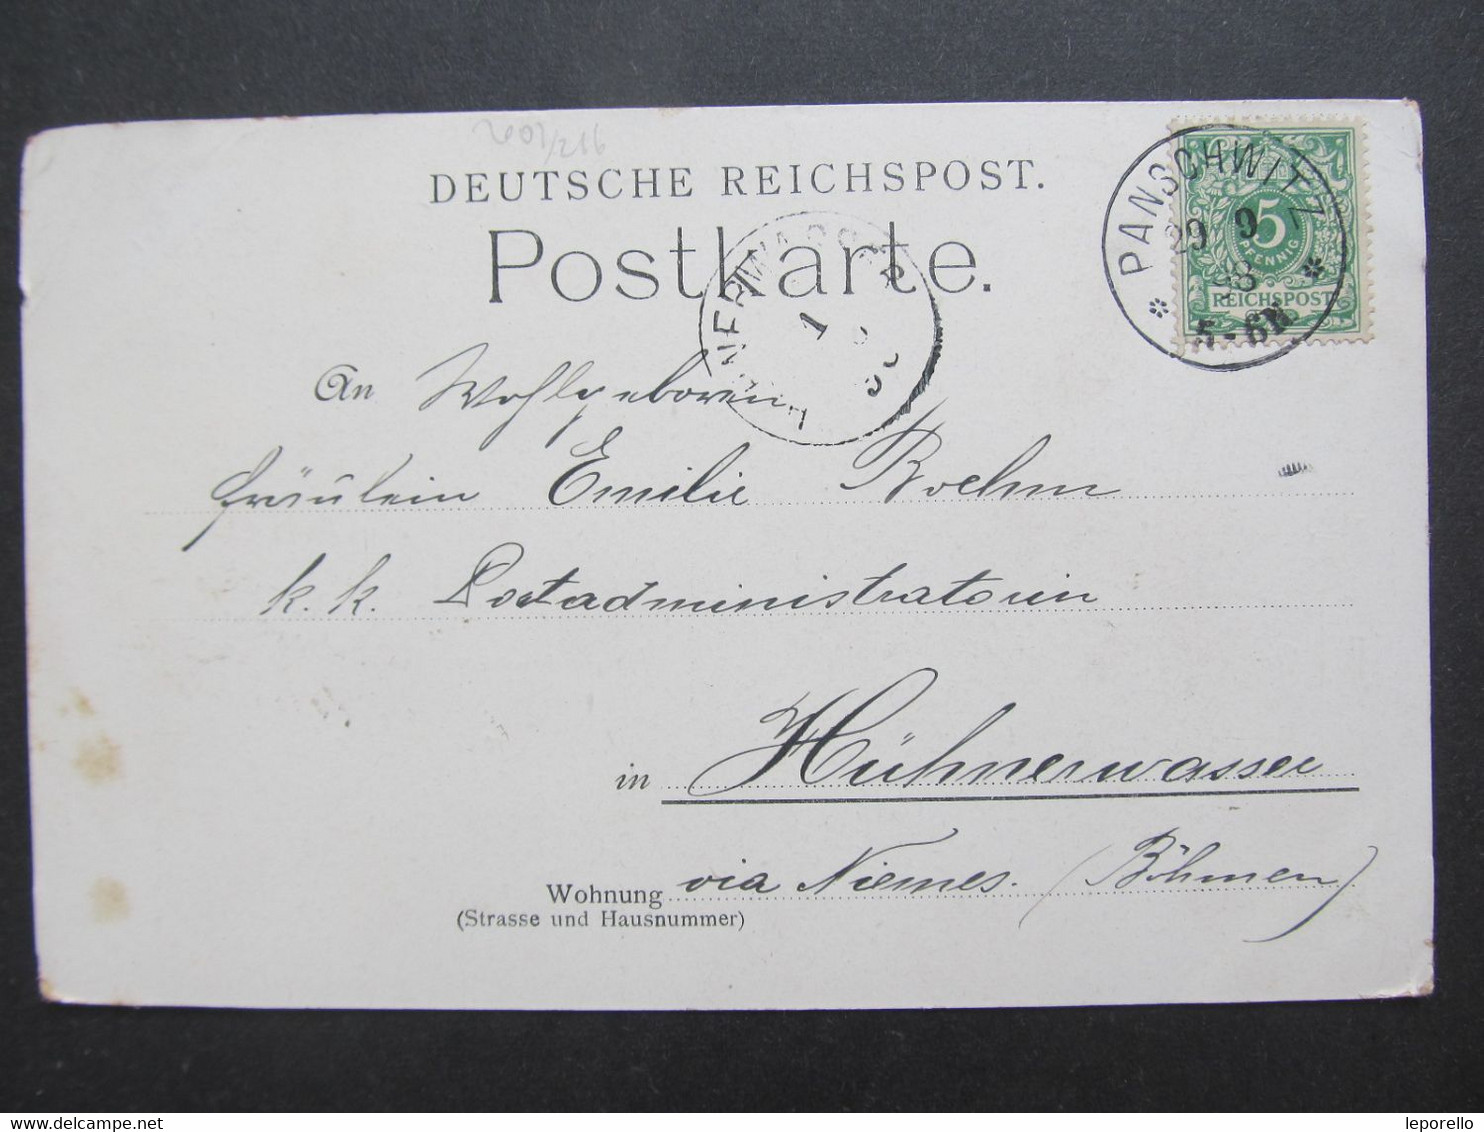 2601/216
DEUTSCHE REICHSPOST.
Postkarte.
PANSCHWITZ
29 9
98
5-6N
5
PFENNIG
REICHSPOST
HÜHNERWASSER
1
An Wohlgeboren
Fräulein Emilie Boehm
k. k. Postadministratorin
in Hühnerwasser
Wohnung via Niemes. (Böhmen)
(Strasse und Hausnummer)
www.delcampe.net
leporello